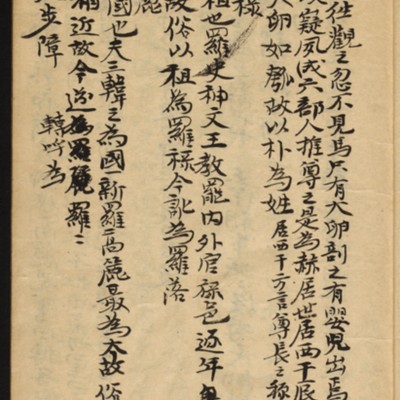 往觀之忽不見馬只有大卵剖之有嬰児出焉
疑夙成六部人推尊之是為赫居世居西干辰
大卵如瓠故以朴為姓居西干方言尊長之稱
祿
祖也羅史神文王教罷內外官祿邑逐年
故俗以祖為羅祿今訛為羅落
麗
國也夫三韓之為國新羅高麗最為大故俗
相近故今為羅麗羅〻轉呼為
步障